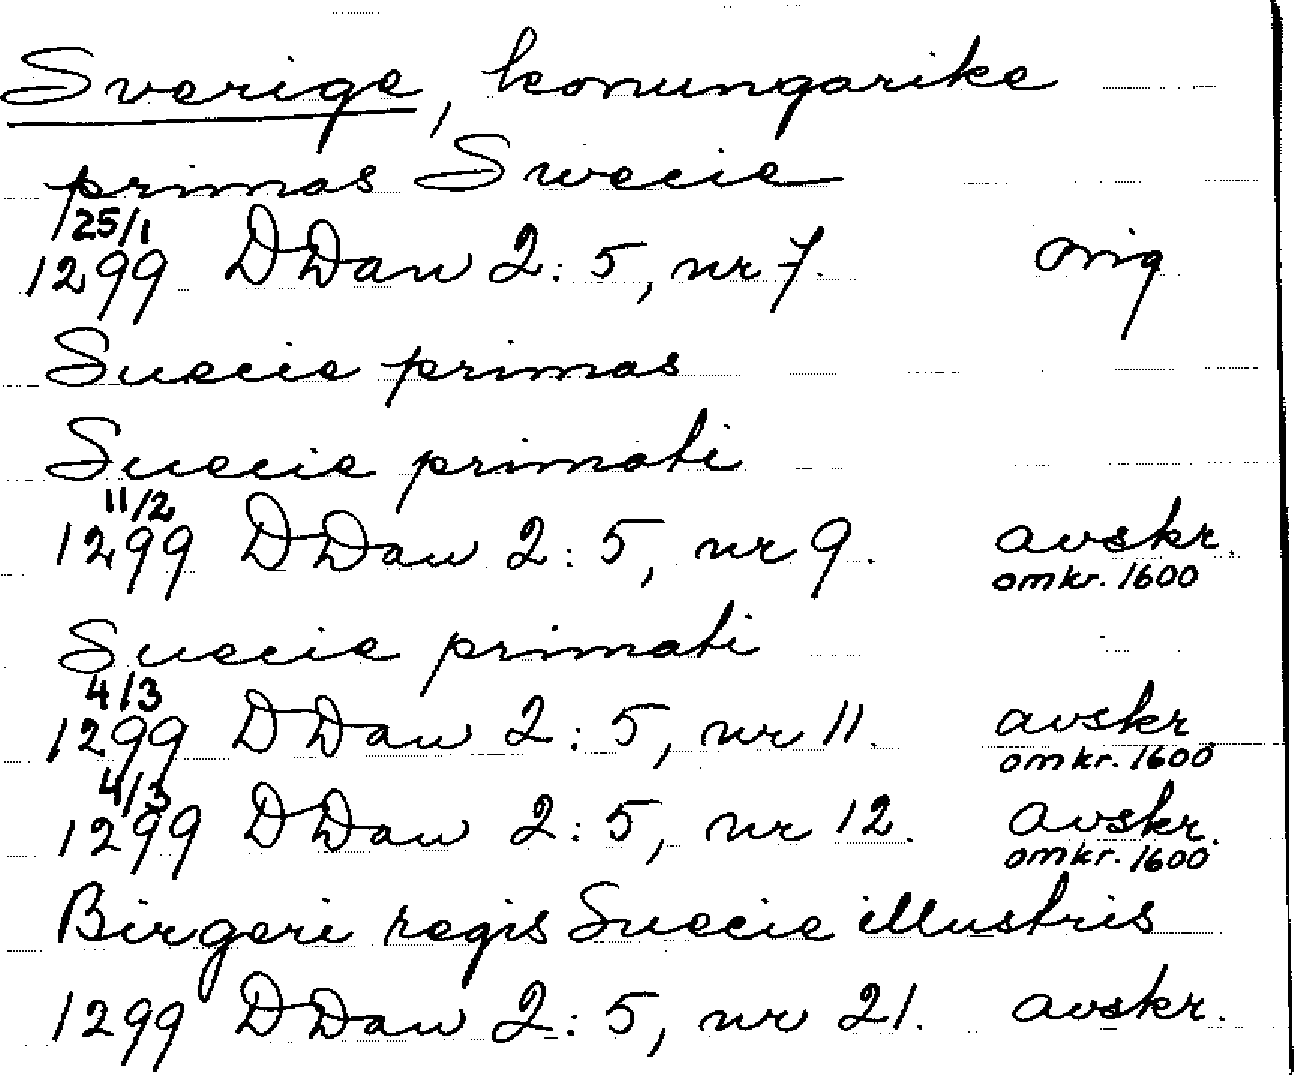 Sverige, konungarike
primas Swecie
25/1
1299 DDan 2:5, nr 7. orig
Suecie primas
Suecie primati
11/2
1299 DDan 2:5, nr 9. avskr.
omkr. 1600
Suecie primati
4/3
1299 DDan 2:5, nr 11. avskr
omkr. 1600
4/3
1299 DDan 2:5, nr 12. avskr.
omkr. 1600
Birgeri regis Suecie illustris
1299 DDan 2:5, nr 21. avskr.